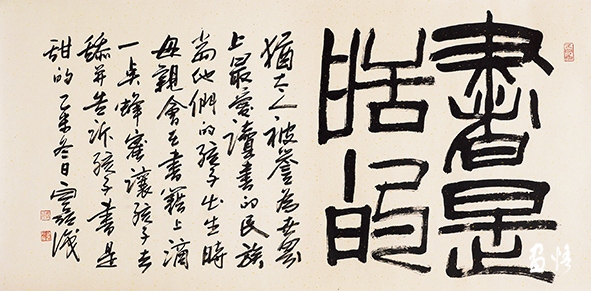 書是
甜的
猶太人被譽為世界
上最愛讀書的民族
當他們的孩子出生時
母親會在書籍上滴
一点蜂蜜讓孩子去
舔并告诉孩子書是
甜的 乙未冬日 識